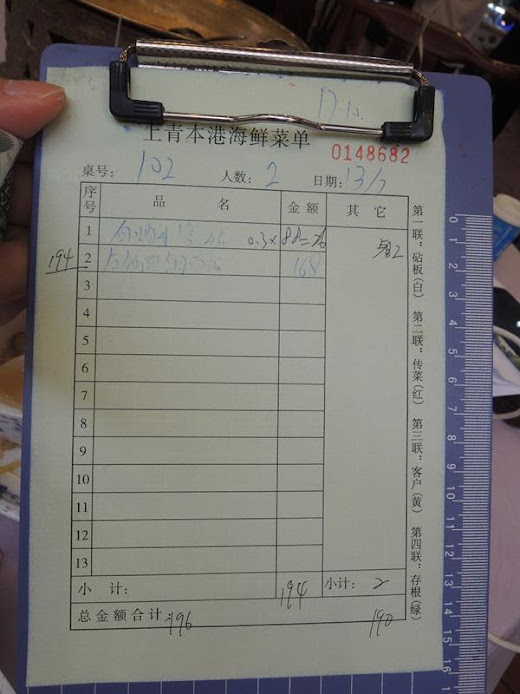 17:10
上青本港海鲜菜单
0148682
桌号: 102 人数: 2 日期: 13/7
序号 品名 金额 其它
1 0.3×88=26
194 2 168
3
4
5
6
7
8
9
10
11
12
13
小计: 194 小计: 2
总金额合计: 196 190
第一联：砧板(白) 第二联：传菜(红) 第三联：客户(黄) 第四联：存根(绿)
0 1 2 3 4 5 6 7 8 9 10 11 12 13 14 15 16